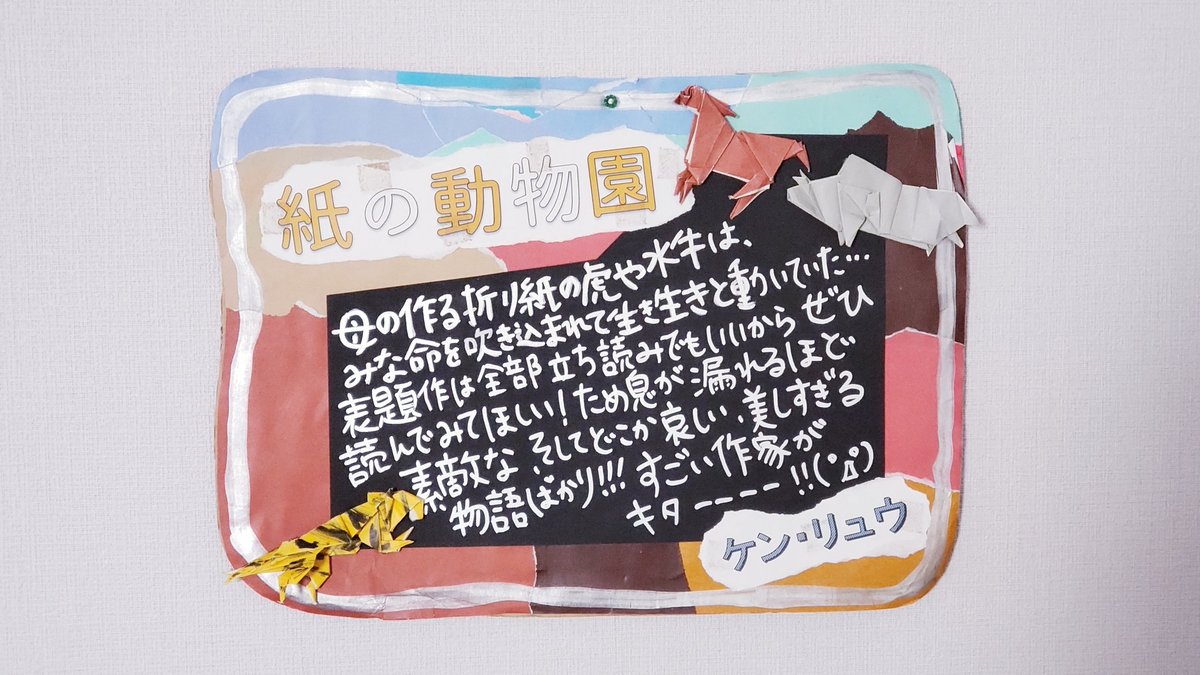 紙の動物園
母の作る折り紙の虎や水牛は、
みな命を吹き込まれて生き生きと動いていた…
表題作は全部立ち読みでもいいからぜひ
読んでみてほしい!ため息が漏れるほど
素敵な、そしてどこか哀しい、美しすぎる
物語ばかり!!!すごい作家が
キターーーー!!(ﾟДﾟ)
ケン・リュウ